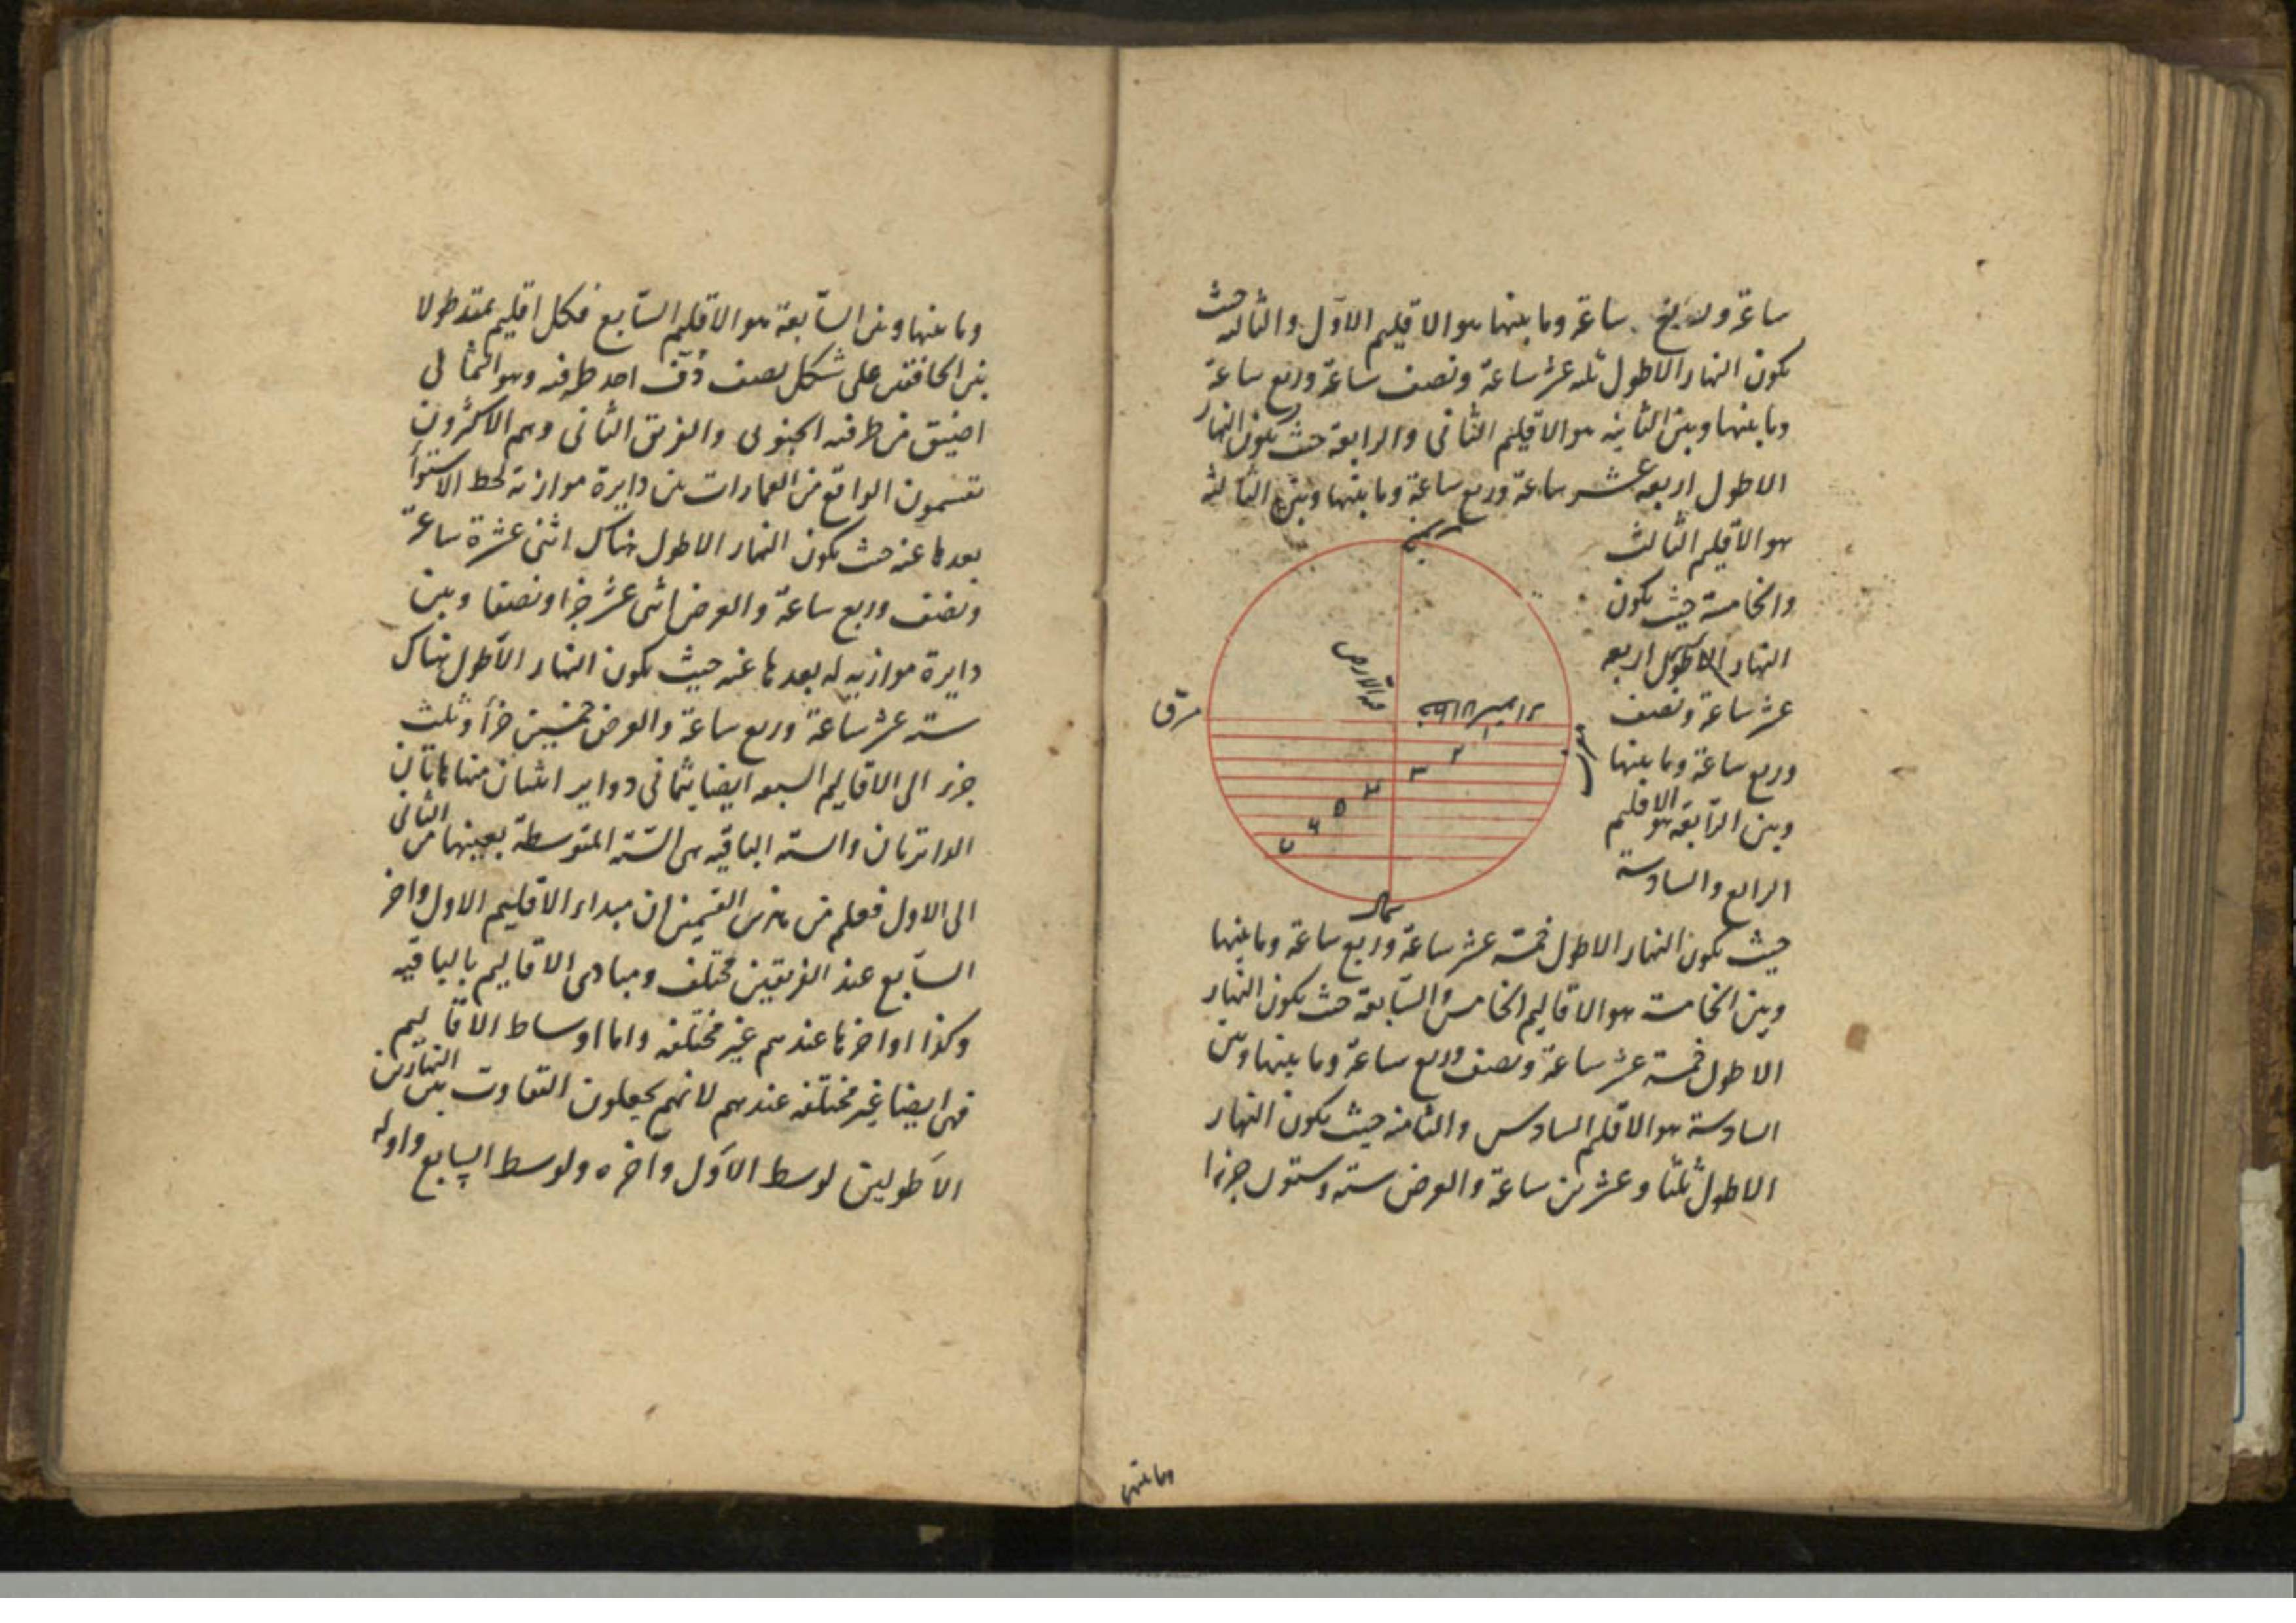 ساعة و ساعة وما بينها هو الاقليم الاول والثالثه حيث
يكون النهار الاطول ثلثه عشر ساعة ونصف ساعة وربع ساعة
وما بينها وبين الثانيه هو الاقليم الثانى والرابعة حيث يكون النهار
الاطول اربعه عشر ساعة وربع ساعة وما بينها وبين الثالثة
هو الاقليم الثالث
والخامسة حيث يكون
النهار الاطول اربعه
عشر ساعة ونصف
وربع ساعة وما بينها
وبين الرابعة هو الاقليم
الرابع والسادسة
جنوب
الارض
مشرق
مغرب
١
٢
٣
٤
٥
٦
٧
شمال
حيث يكون النهار الاطول خمسة عشر ساعة وربع ساعة وما بينها
وبين الخامسة هو الاقاليم الخامس والسابعة حيث يكون النهار
الاطول خمسة عشر ساعة ونصف وربع ساعة وما بينها وبين
السادسة هو الاقليم السادس والثامنه حيث يكون النهار
الاطول ثلثا وعشرين ساعة والعرض ستة وستون جزءا
وما بينها
وما بينها وبين السابعة هو الاقليم السابع فكل اقليم يمتد طولا
بين الخافقين على شكل نصف دف احد طرفيه وهو الشمالى
اضيق من طرفه الجنوبى والفريق الثانى وهم الاكثرون
يقسمون الواقع من العمارات بين دايرة موازية لخط الاستوا
بعدها عنه حيث يكون النهار الاطول هناك اثنى عشرة ساعة
ونصف وربع ساعة والعرض اثنى عشر جزا ونصفا وبين
دايرة موازيه له بعدها عنه حيث يكون النهار الاطول هناك
سته عشر ساعة وربع ساعة والعرض خمسين جزأ وثلث
جزء الى الاقاليم السبعه ايضا بثمانى دواير اثنان منها هاتان
الدائرتان والسته الباقيه هى الستة المتوسطة بعينها من الثانى
الى الاول فعلم من هذين القسمين ان مبداء الاقليم الاول واخر
السابع عند الفريقين مختلف ومبادى الاقاليم بالباقيه
وكذا اواخرها عندهم غير مختلفه واما اوساط الاقاليم
فهى ايضا غير مختلفه عندهم لانهم يجعلون التفاوت بين النهارين
الاطولين لوسط الاول واخره ولوسط السابع واوله